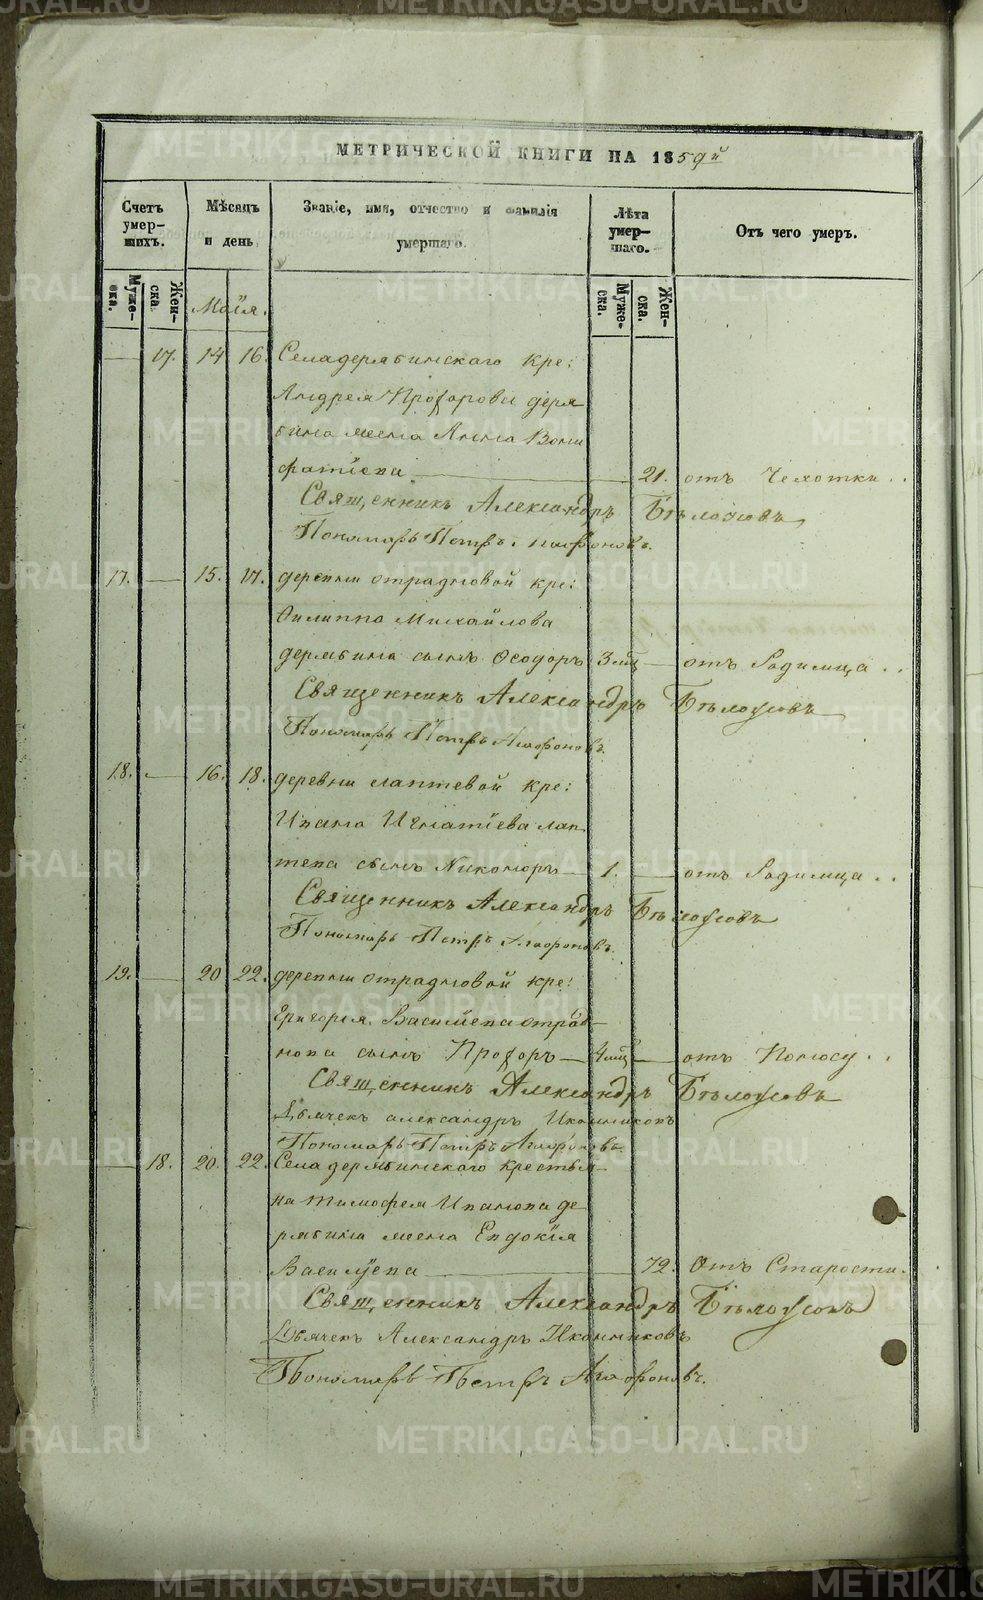 METRIKI.GASO-URAL.RU
МЕТРИЧЕСКОЙ КНИГИ НА 1859й
Счетъ умер-шихъ.
Мѣсяцъ и день
Званіе, имя, отчество и фамилія умершаго.
Лѣта умер-шаго.
Отъ чего умеръ.
Муже-ска.
Жен-ска.
Муже-ска.
Жен-ска.
Маія.
17. 14 16. Села дерябинскаго кре:
Андрея Прохорова деря
бина жена Анна Вони
фатіева 21. отъ Чехотки..
Священникъ Александръ Бѣлоусовъ
Пономарь Петръ Агафоновъ.
17. 15. 17. деревни отрадновой кре:
Филиппа Михайлова
дерябина сынъ Ѳеодоръ 3 мц отъ Родимца..
Священникъ Александръ Бѣлоусовъ
Пономарь Петръ Агафоновъ.
18. 16. 18. деревни лаптевой кре:
Ивана Игнатіева лап
тева сынъ Никоноръ 1. отъ Родимца..
Священникъ Александръ Бѣлоусовъ
Пономарь Петръ Агафоновъ.
19. 20 22. деревни отрадновой кре:
Григорья Васильева отрад
нова сынъ Прохоръ 4 мц отъ Поносу..
Священникъ Александръ Бѣлоусовъ
Дьячекъ александръ Иконниковъ
Пономарь Петръ Агафоновъ.
18. 20. 22. Села дерябинскаго крестья
на тимофея Иванова де
рябина жена Евдокія
Васильева 72. Отъ Старости.
Священникъ Александръ Бѣлоусовъ
Дьячекъ Александръ Иконниковъ
Пономарь Петръ Агафоновъ.